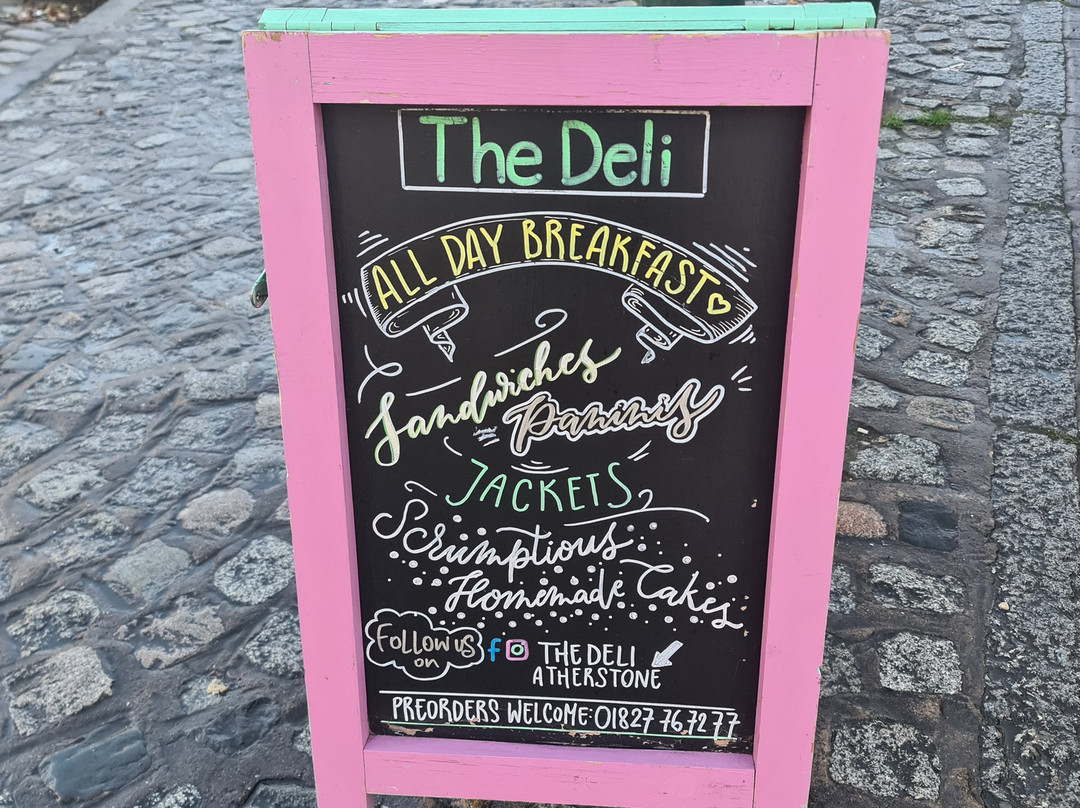 The Deli
ALL DAY BREAKFAST
Sandwiches
Paninis
JACKETS
Scrumptious
Homemade Cakes
FOLLOW US
on
f THE DELI
ATHERSTONE
PREORDERS WELCOME: 01827 767277